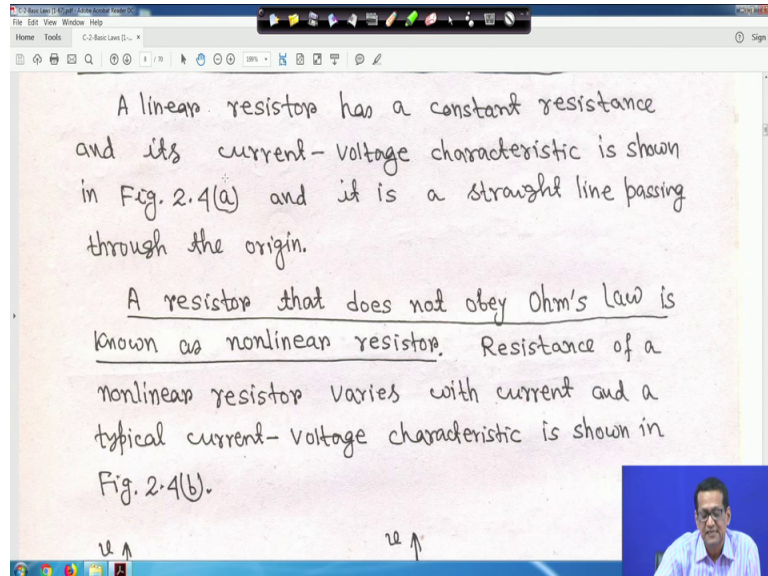 C-2-Basic Laws [1-67].pdf - Adobe Acrobat Reader DC
File Edit View Window Help
Home Tools C-2-Basic Laws [1-... × Sign
A linear resistor has a constant resistance
and its current-voltage characteristic is shown
in Fig. 2.4(a) and it is a straught line passing
through the origin.
A resistor that does not obey Ohm's law is
known as nonlinear resistor. Resistance of a
nonlinear resistor varies with current and a
typical current-voltage characteristic is shown in
Fig. 2.4(b).
v v